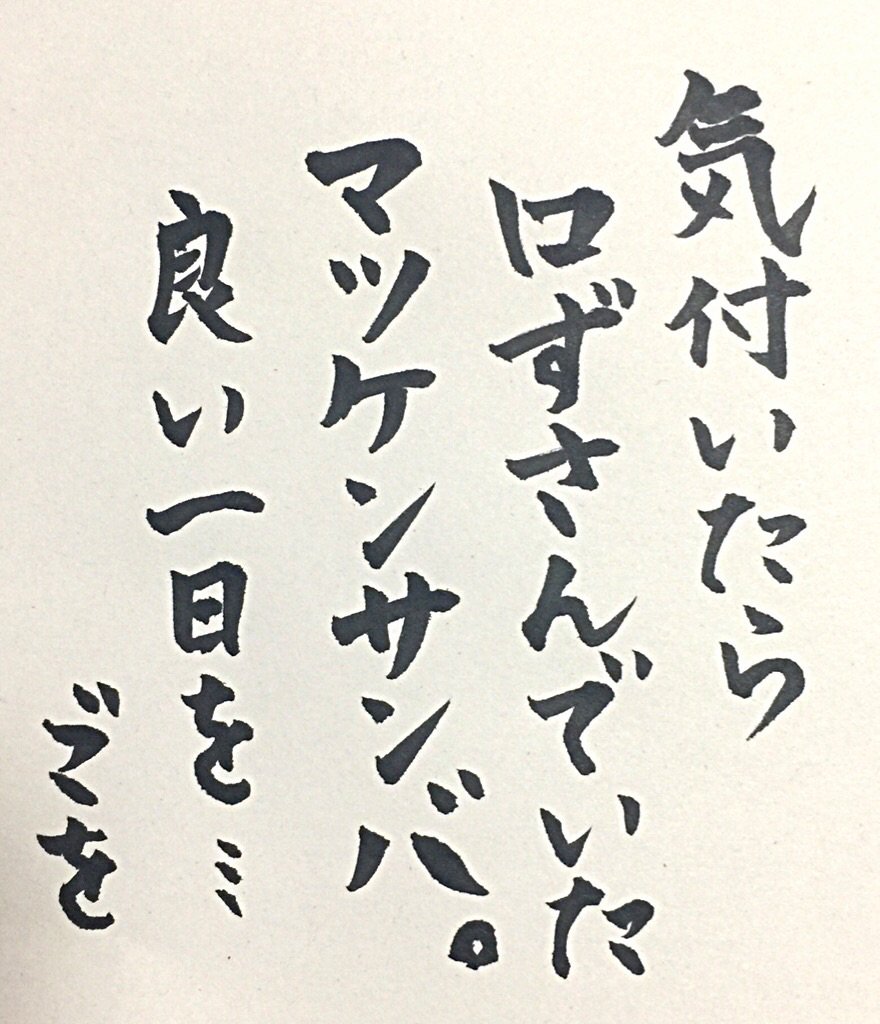 気付いたら
口ずさんでいた
マツケンサンバ。
良い一日を…
ごを